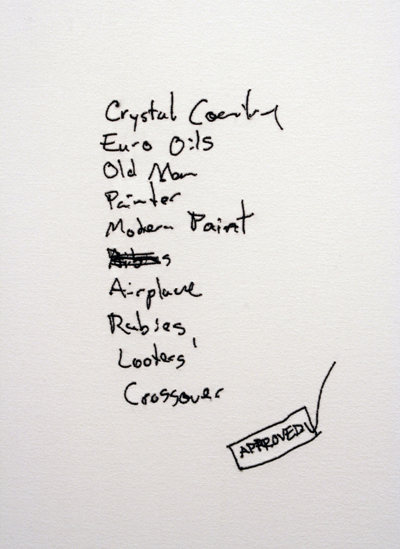 Crystal
Euro Oils
Old Man
Painter
Modern Paint
Airplane
Rabies
Looters'
Crossover
APPROVED!